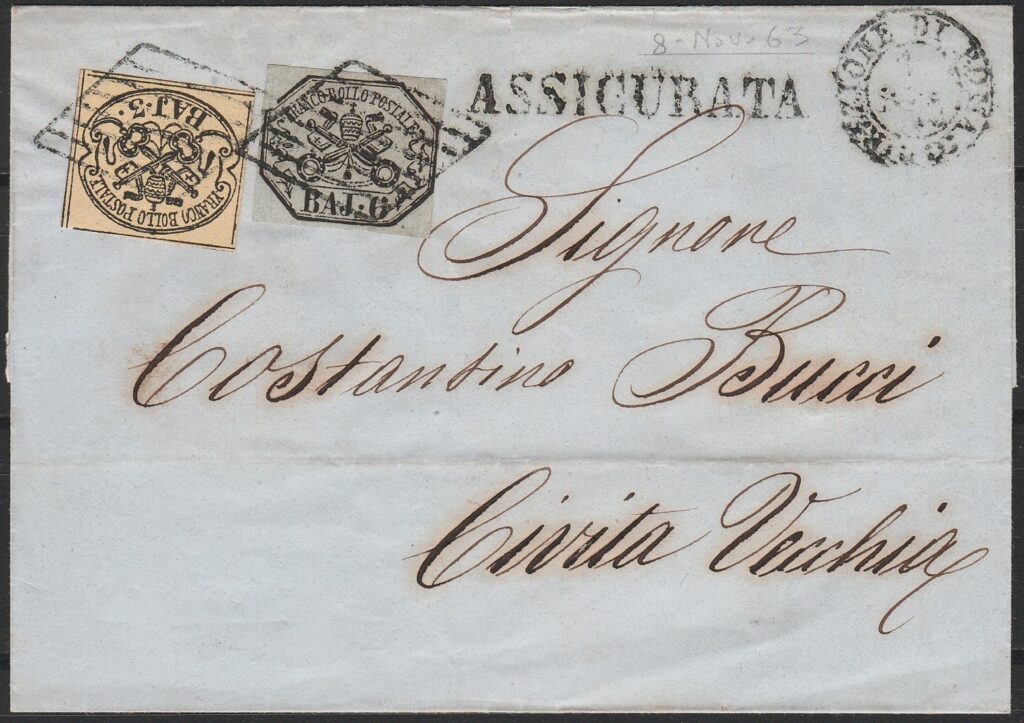 8 - Nov - 63
BAJ: 3.
FRANCO BOLLO POSTALE
FRANCO BOLLO POSTALE
BAJ: 6
ASSICURATA
DIREZIONE DI ROMA
Signore
Costantino Bucci
Civita Vecchia